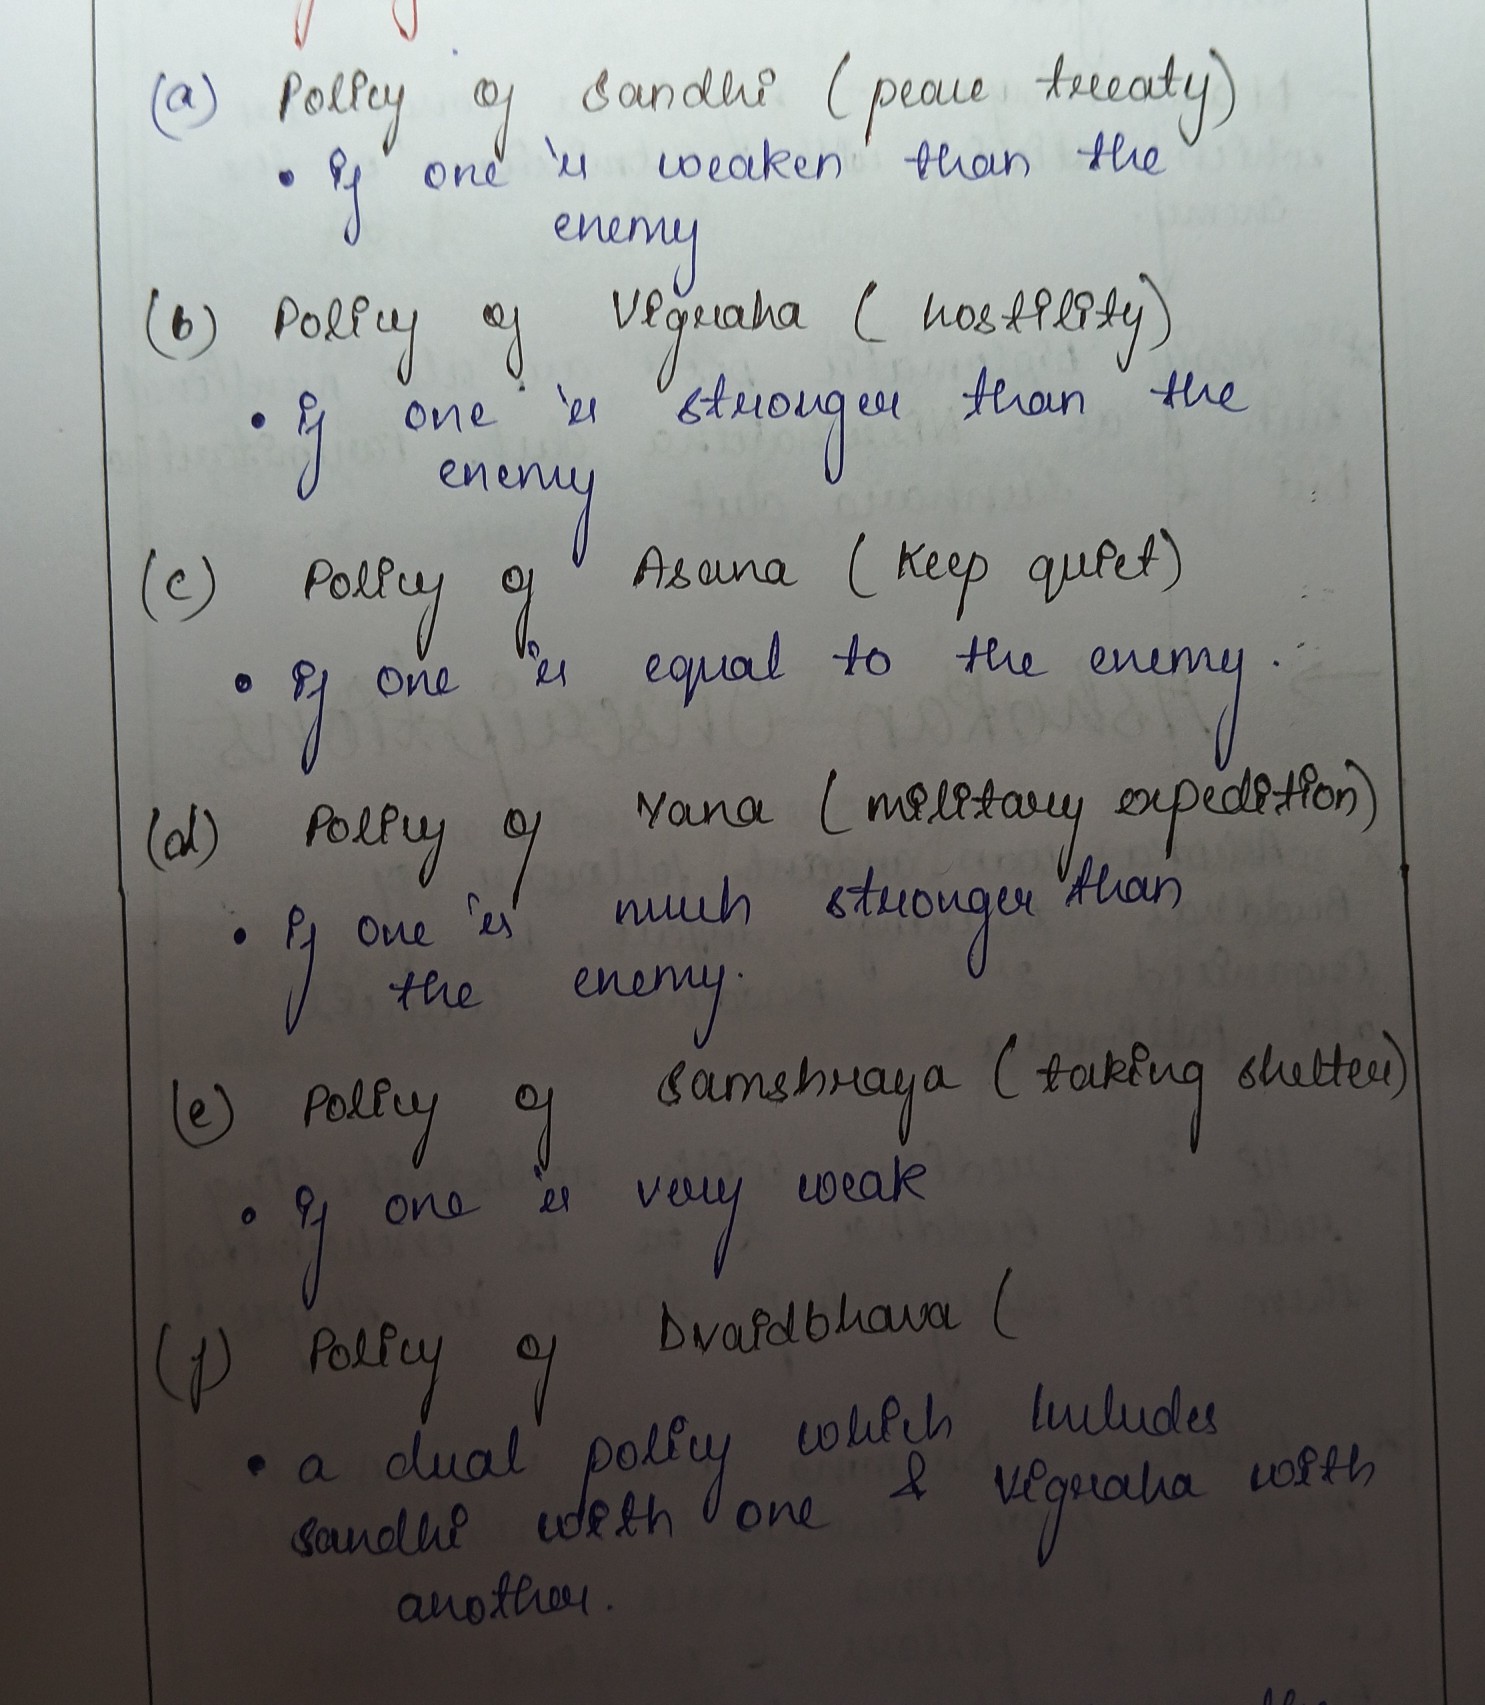 (a) Policy of Sandhi (peace treaty)
• If one is weaker than the
enemy
(b) Policy of Vigraha (hostility)
• If one is stronger than the
enemy
(c) Policy of Asana (Keep quiet)
• If one is equal to the enemy.
(d) Policy of Yana (military expedition)
• If one is much stronger than
the enemy.
(e) Policy of Samshraya (taking shelter)
• If one is very weak
(f) Policy of Dvaidbhava (
• a dual policy which includes
sandhi with one & vigraha with
another.